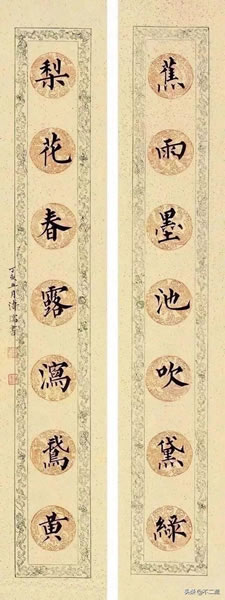 蕉雨墨池吹黛綠
梨花春露瀉鵞黃
丁亥月溥儒書
头条@不二